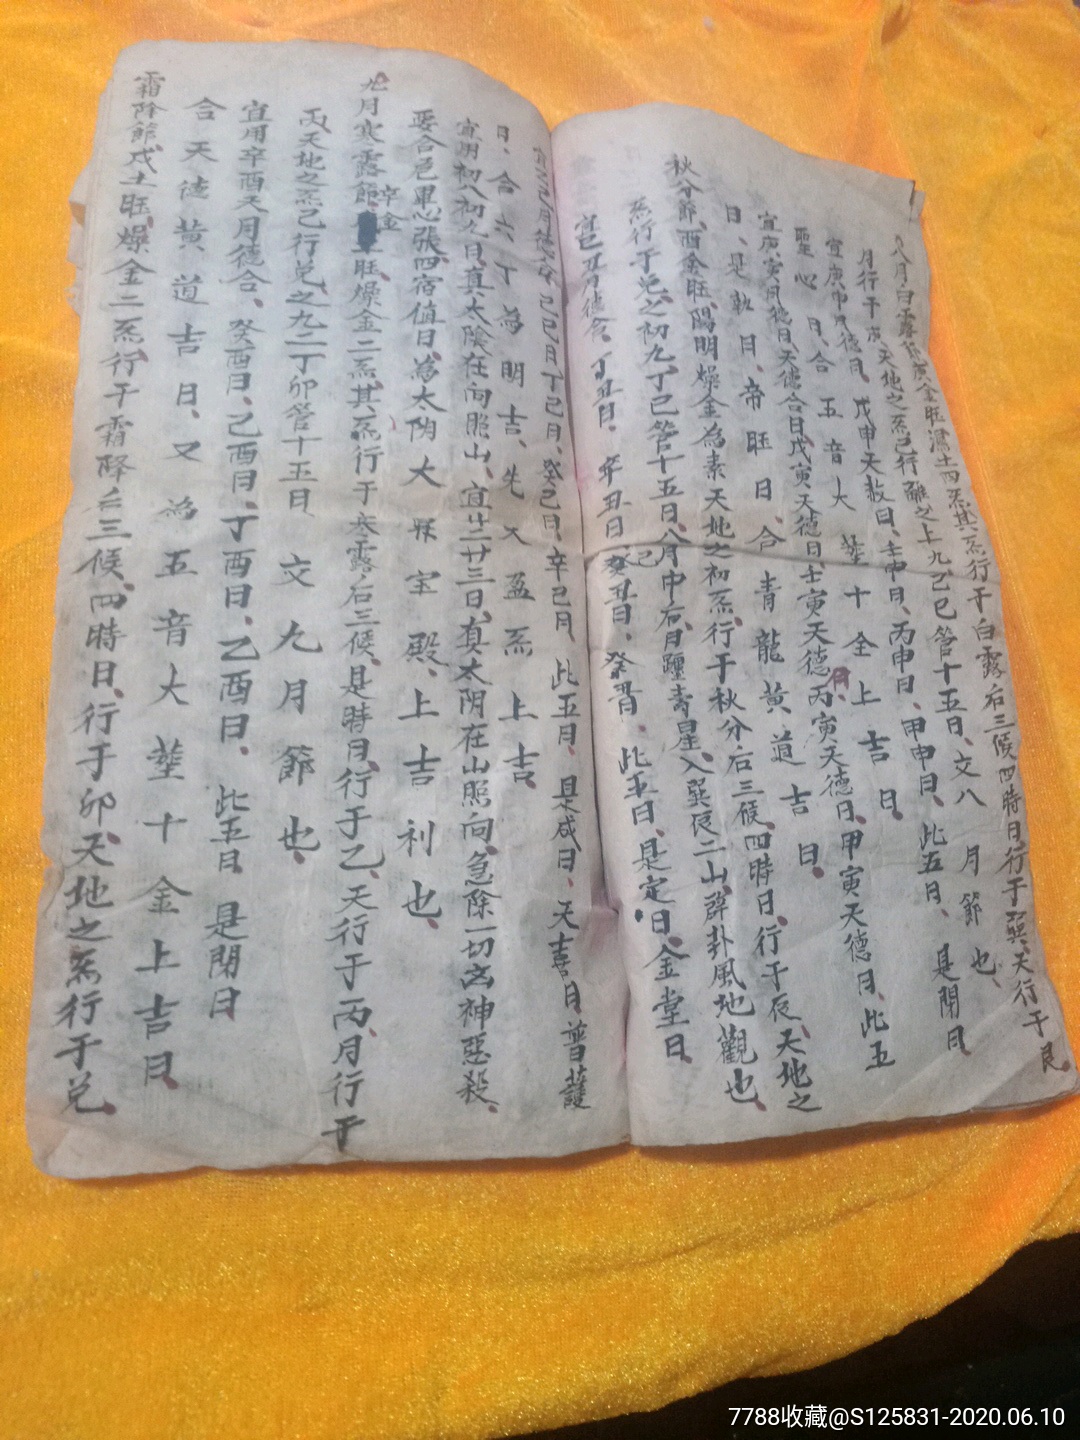 八月白露節庚金旺濕土四炁其炁行于白露后三候四時日行于巽、天行于艮
月行干庚、天地之炁已行離之上九乙巳管十五日、文八月節也、
宜庚申月德日、戊申天赦日、壬申日、丙申日、甲申日、此五日、是閉日
聖心日、合五音大塟十全上吉日、
宜庚寅月德日、天德合日戊寅天德日、壬寅天德丙寅天德日、甲寅天德日、此五
日、是執日、帝旺日、合青龍黄道吉日、
秋分節、酉金旺、陽明燥金為素天地之初炁、行于秋分后三候、四時日、行于辰、天地之
炁行于兌之初九、丁巳管十五日、八月中后、月躔壽星、入巽辰二山、辟卦風地觀也、
宜己丑月德合、丁丑日、辛丑日己癸丑日、此五日、是定日、金堂日
巳月德合己巳日丁巳日、癸巳日、辛巳日、此五日、是成日、天喜日普護
日、合六丁為明吉、先天盈炁上吉、
宜用初八初九日、真太陰在向照山、宜廿二廿三日、真太阴在山照向、急除一切凶神惡殺、
要合危畢心張四宿值日、為太阴大昇宝殿、上吉利也、
九月寒露節辛金旺、燥金二炁、其炁行于寒露后三候、是時日、行于乙、天行于丙、月行于
丙天地之炁已行兌之九二丁卯管十五日文九月節也、
宜用辛酉天月德合、癸酉日、己酉日、丁酉日、乙酉日、此五日是閉日
合天德黄道吉日、又為五音大塟十金上吉日、
霜降節、戌土旺、燥金二炁行于霜降后三候、四時日、行于卯、天地之炁行于兌、
7788收藏@S125831-2020.06.10